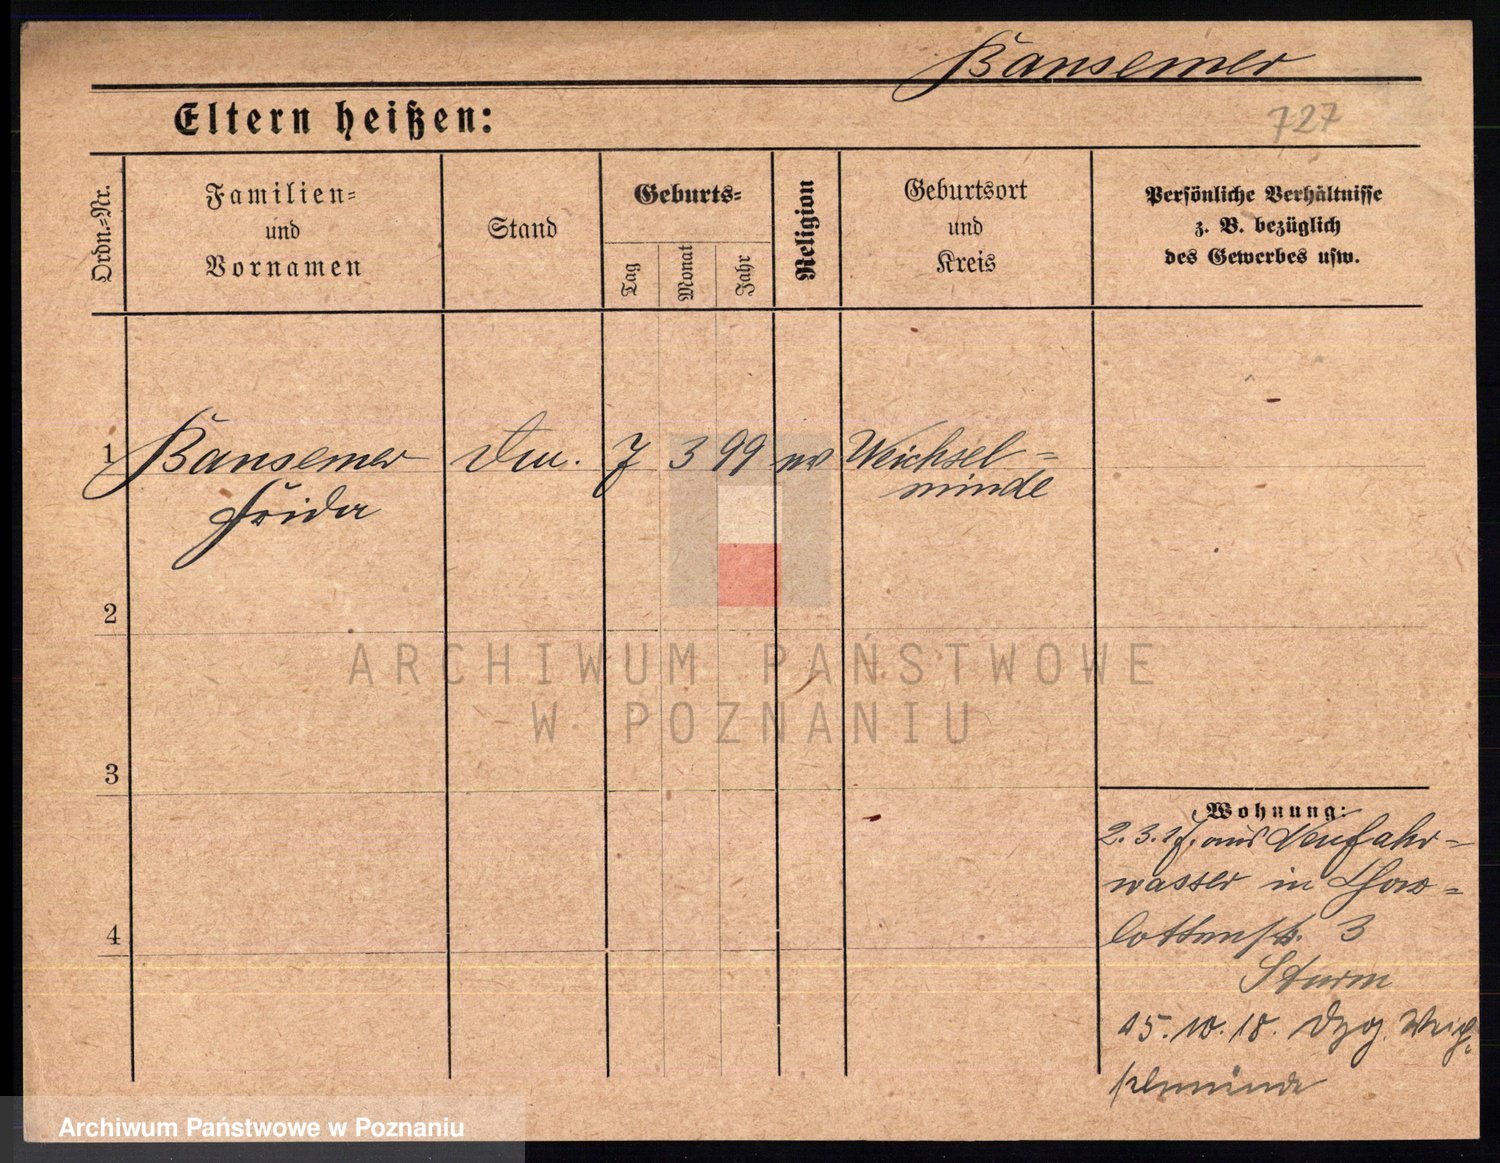 Bansemer
Eltern heißen:
727
Ordn.-Nr.
Familien-
und
Vornamen
Stand
Geburts-
Tag
Monat
Jahr
Religion
Geburtsort
und
Kreis
Persönliche Verhältnisse
z. B. bezüglich
des Gewerbes usw.
1 Bansemer 7 3 99 ev Weichsel-
Frida münde
2
ARCHIWUM PAŃSTWOWE
W POZNANIU
3
Wohnung:
2.3.17. aus Neufahr-
wasser in Char-
lottenstr. 3
Sturm
15.10.18. Dzg. Weich-
selmünde
4
Archiwum Państwowe w Poznaniu